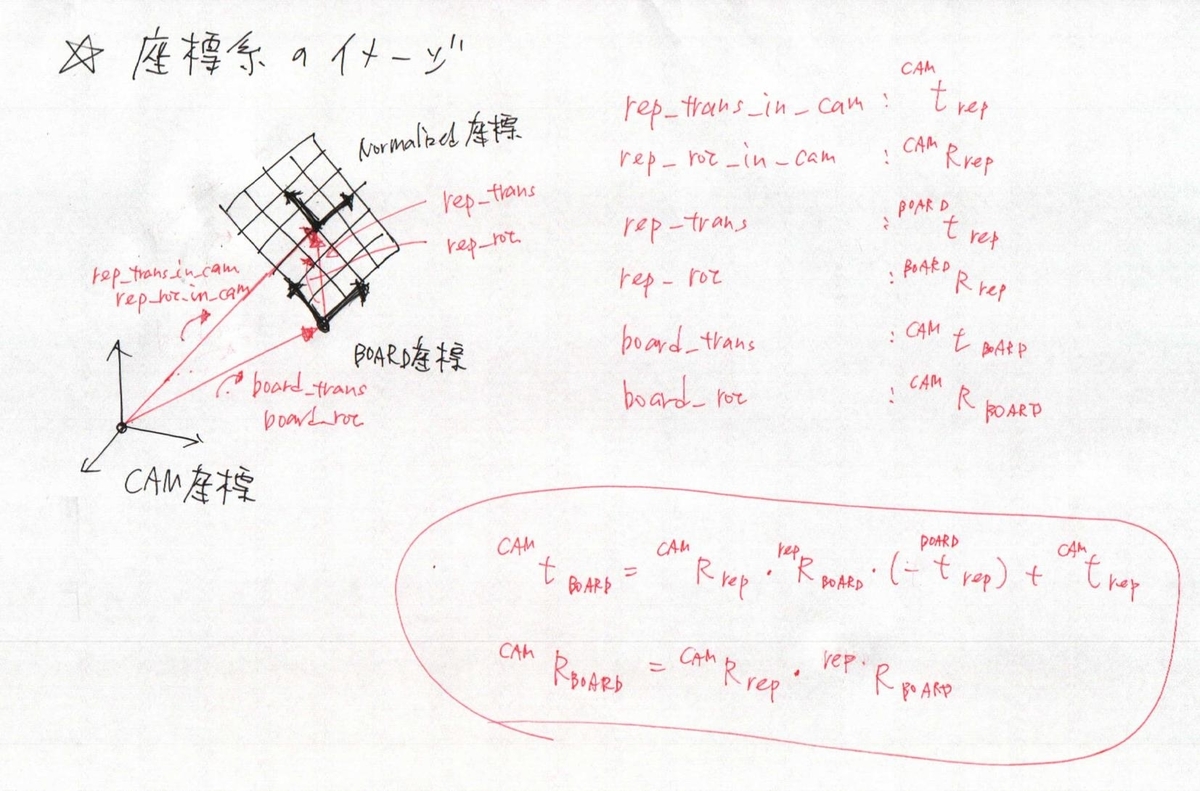 ☆ 座標系のイメージ
Normalized座標
rep_trans
rep_rot
rep_trans_in_cam
rep_rot_in_cam
BOARD座標
board_trans
board_rot
CAM座標
rep_trans_in_cam : CAM t rep
rep_rot_in_cam : CAM R rep
rep_trans : BOARD t rep
rep_rot : BOARD R rep
board_trans : CAM t BOARD
board_rot : CAM R BOARD
CAM t BOARD = CAM R rep · rep R BOARD · (- BOARD t rep) + CAM t rep
CAM R BOARD = CAM R rep · rep R BOARD